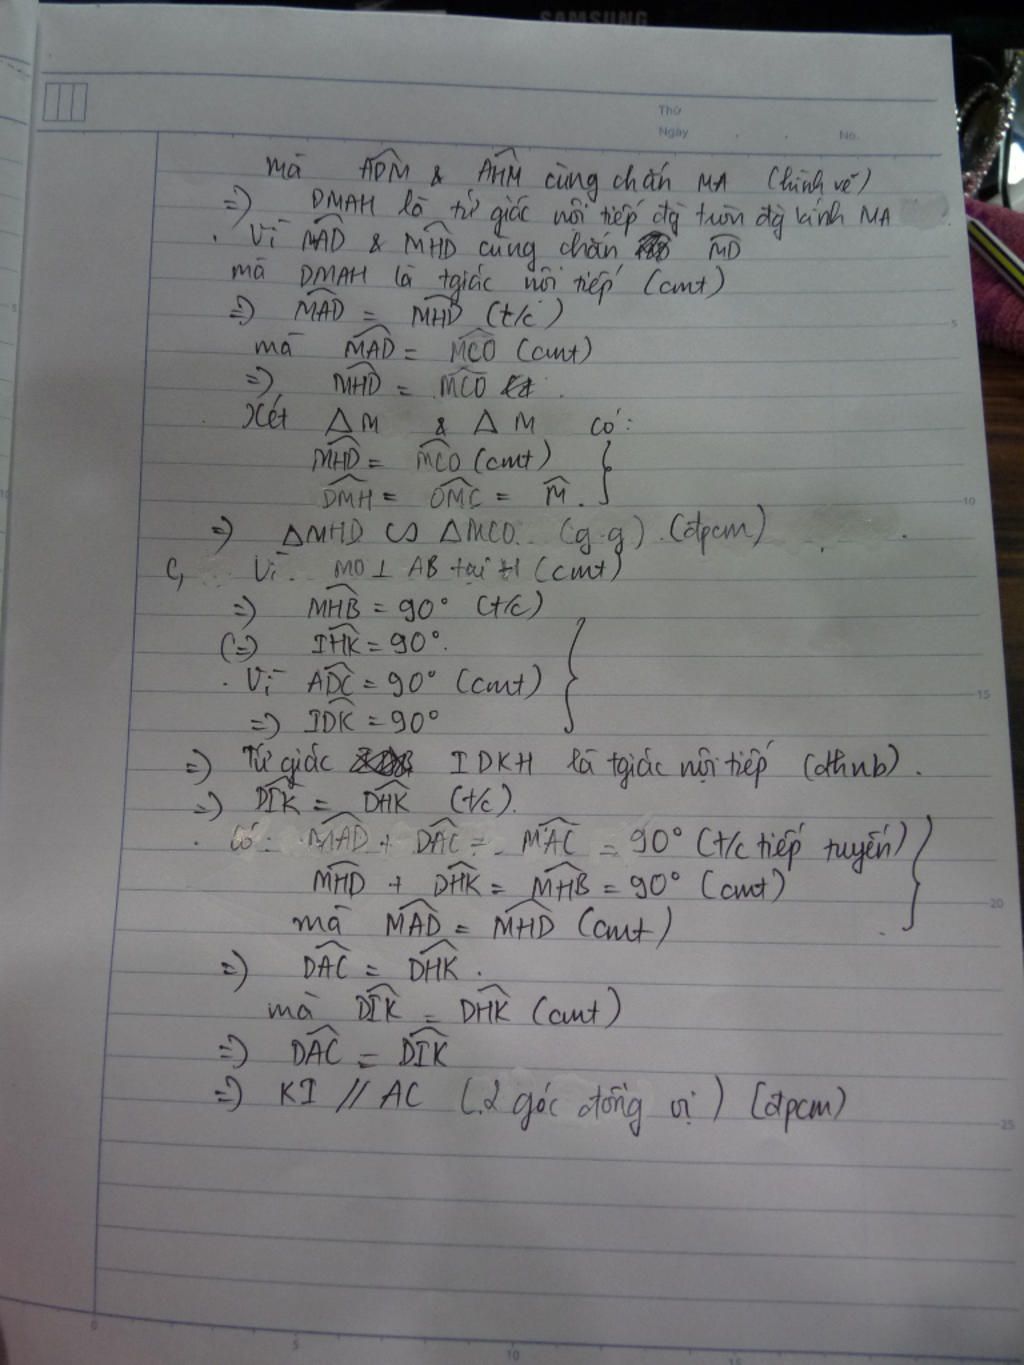 SAMSUNG
Thứ
Ngày . . No.
mà \widehat{ADM} & \widehat{AHM} cùng chắn MA (hình vẽ)
=) DMAH là tứ giác nội tiếp đg tròn đg kính MA
. Vì \widehat{MAD} & \widehat{MHD} cùng chắn \widehat{MD}
mà DMAH là tgiác nội tiếp (cmt)
=) \widehat{MAD} = \widehat{MHD} (t/c)
mà \widehat{MAD} = \widehat{MCO} (cmt)
=) \widehat{MHD} = \widehat{MCO}
. Xét ΔM & ΔM có:
\widehat{MHD} = \widehat{MCO} (cmt)
\widehat{DMH} = \widehat{OMC} = \widehat{M}.
=) ΔMHD ∽ ΔMCO. (g.g). (đpcm)
C, Vì MO ⊥ AB tại H (cmt)
=) \widehat{MHB} = 90° (t/c)
(=) \widehat{IHK} = 90°.
. Vì \widehat{ADC} = 90° (cmt)
=) \widehat{IDK} = 90°
=) Tứ giác IDKH là tgiác nội tiếp (dhnb).
=) \widehat{DIK} = \widehat{DHK} (t/c).
. Có: \widehat{MAD} + \widehat{DAC} = \widehat{MAC} = 90° (t/c tiếp tuyến)
\widehat{MHD} + \widehat{DHK} = \widehat{MHB} = 90° (cmt)
mà \widehat{MAD} = \widehat{MHD} (cmt)
=) \widehat{DAC} = \widehat{DHK}.
mà \widehat{DIK} = \widehat{DHK} (cmt)
=) \widehat{DAC} = \widehat{DIK}
=) KI // AC (2 góc đồng vị) (đpcm)
5
10
15
20
25
0 5 10 15